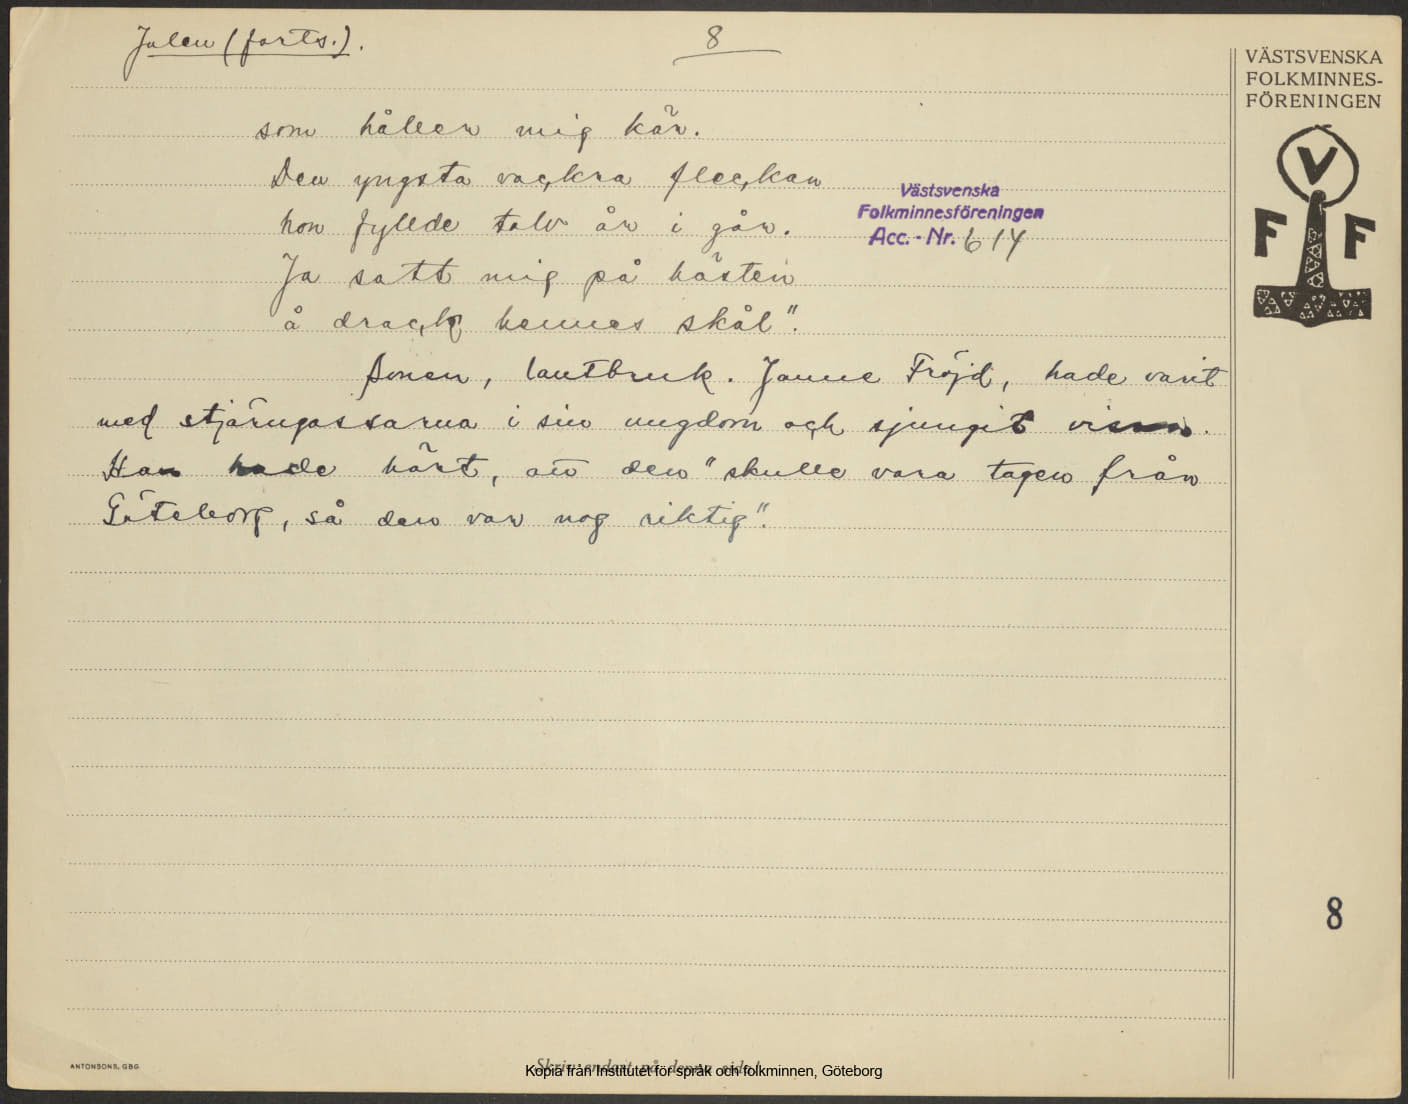 Julen (forts.).
8
VÄSTSVENSKA
FOLKMINNES-
FÖRENINGEN
V
F F
som håller mig kär.
Den yngsta vackra fleckan
hon fyllde tolv år i går.
Västsvenska
Folkminnesföreningen
Acc. - Nr. 614
Ja satt mig på hästen
å drack hennes skål".
Sonen, lantbruk. Janne Fröjd, hade varit
med stjärngossarna i sin ungdom och sjungit visan.
Han hade hört, att den "skulle vara tagen från
Göteborg, så den var nog riktig".
8
ANTONSONS, GBG
Skriv endast på denna sida!
Kopia från Institutet för språk och folkminnen, Göteborg